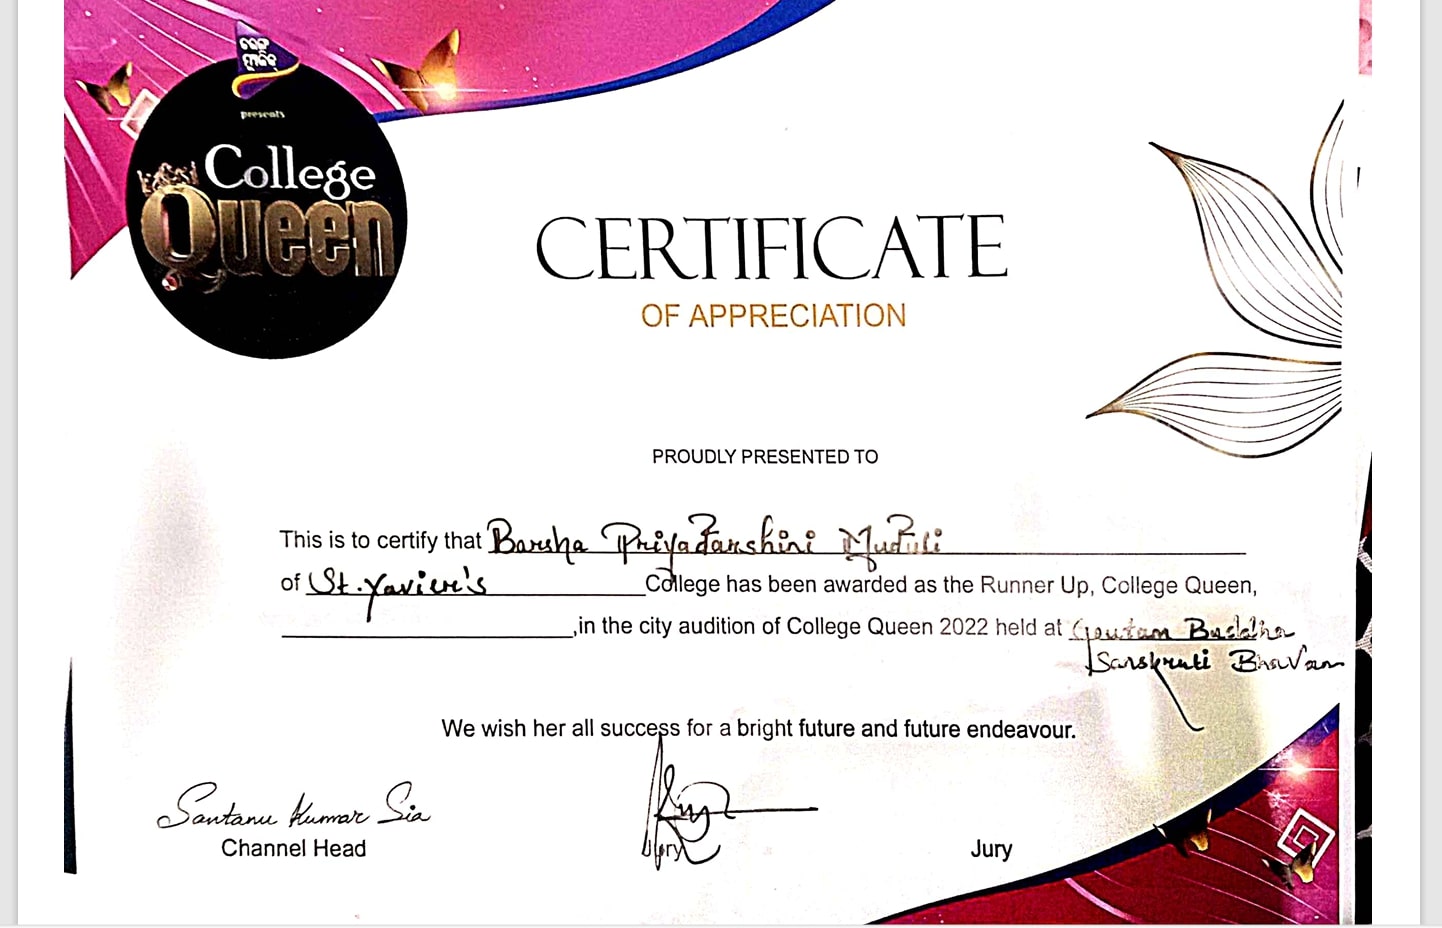 ତରଙ୍ଗ
ମ୍ୟୁଜିକ୍
presents
College
Queen
CERTIFICATE
OF APPRECIATION
PROUDLY PRESENTED TO
This is to certify that Barsha Priyadarshini Muduli
of St. Xavier's College has been awarded as the Runner Up, College Queen,
,in the city audition of College Queen 2022 held at Goutam Buddha
Sanskruti Bhavan
We wish her all success for a bright future and future endeavour.
Santanu Kumar Sia
Channel Head
Jury